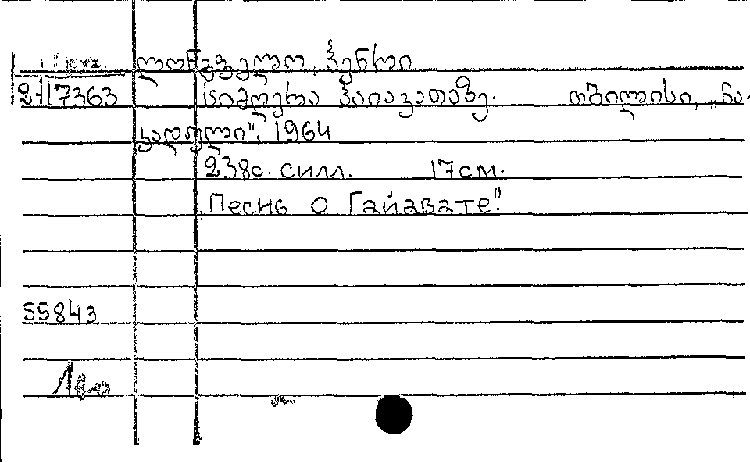 ლონგფელო, ჰენრი
2-17363 სიმღერა ჰაიავათაზე. თბილისი, „ნა-
კადული", 1964
238с. силл. 17см.
Песнь о Гайавате."
55843